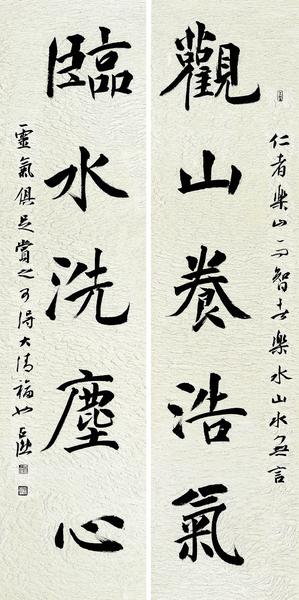 觀山養浩氣
仁者樂山而智者樂水山水無言
臨水洗塵心
靈氣俱足賞之可得大清福也